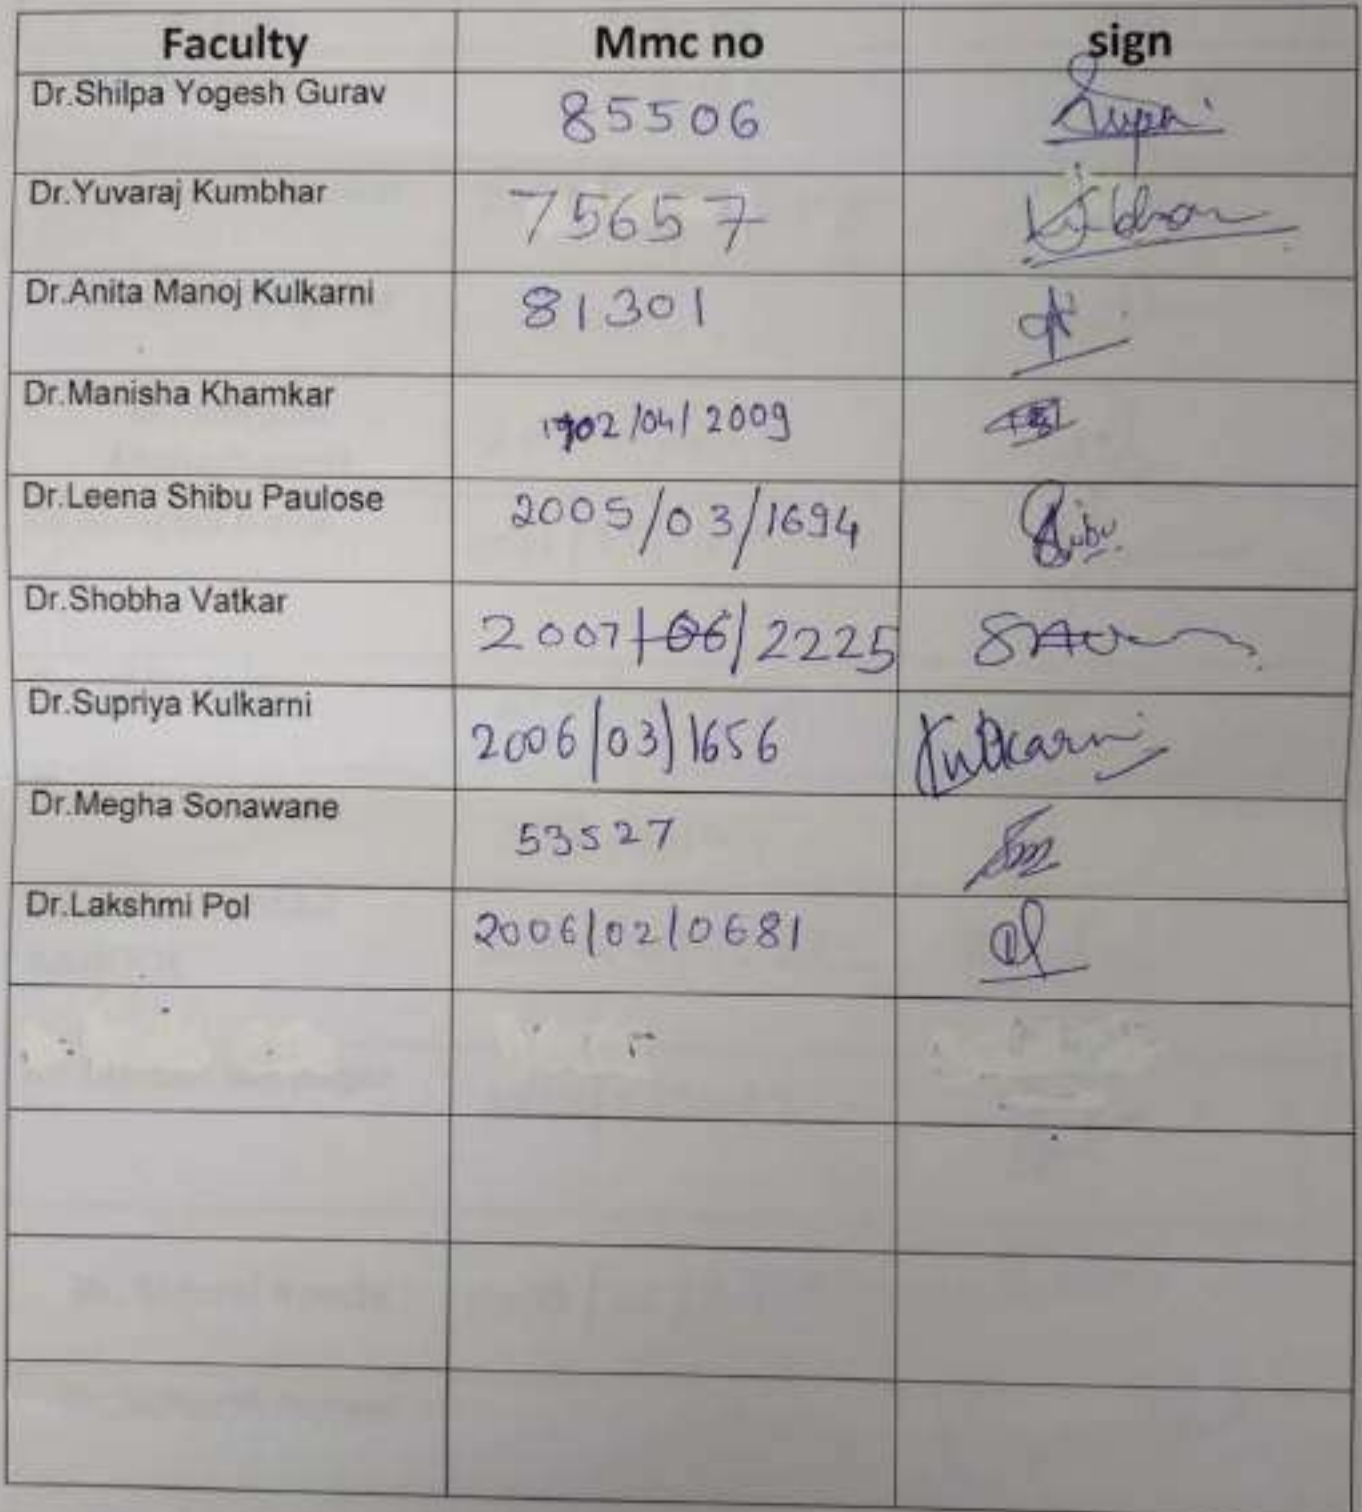 Faculty Mmc no sign
Dr.Shilpa Yogesh Gurav 85506
Dr.Yuvaraj Kumbhar 75657
Dr.Anita Manoj Kulkarni 81301
Dr.Manisha Khamkar 1902/04/2009
Dr.Leena Shibu Paulose 2005/03/1694
Dr.Shobha Vatkar 2007/06/2225
Dr.Supriya Kulkarni 2006/03/1656 Kulkarni
Dr.Megha Sonawane 53527
Dr.Lakshmi Pol 2006/02/0681